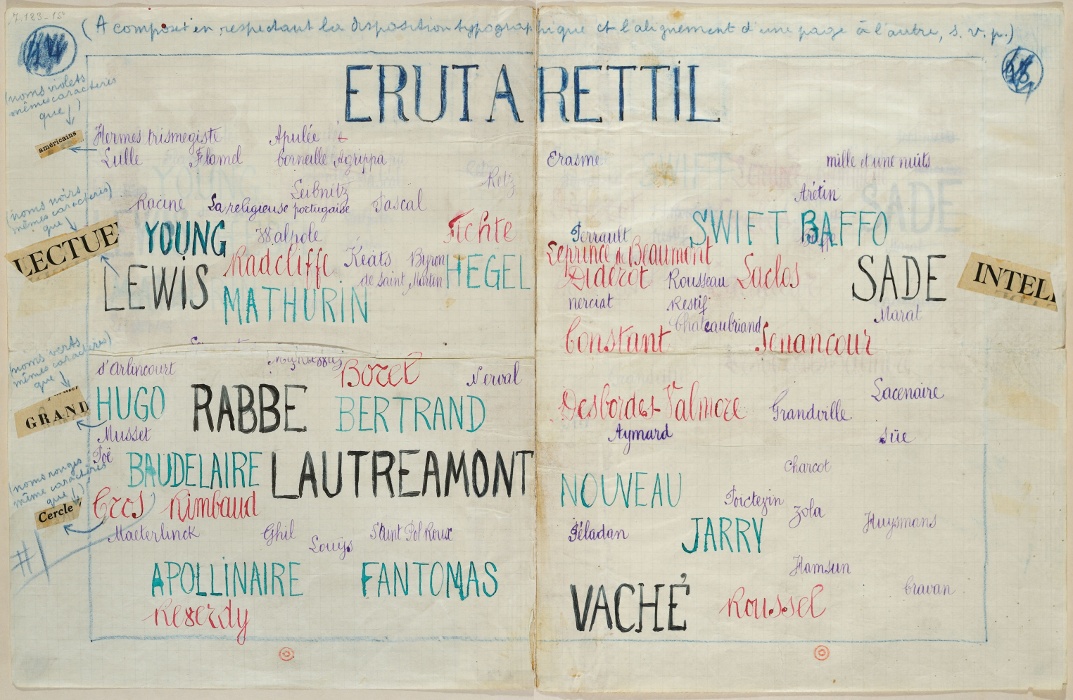 (A composer en respectant la disposition typographique et l'alignement d'une page à l'autre, s. v. p.)
ERUTARETTIL
(noms violets
mêmes caractères
que ↓)
américains
Hermes trismegiste Apulée
Lulle Flamel Corneille Agrippa Erasme mille et une nuits
Retz
Leibnitz Arétin
Racine La religieuse portugaise Pascal
(noms noirs
mêmes caractères)
que
LECTUE
YOUNG Walpole Fichte Perrault SWIFT BAFFO
Leprince de Beaumont
LEWIS Radcliffe Keats Byron HEGEL Diderot Rousseau Laclos SADE INTEL
de Saint Martin
MATHURIN nerciat Restif Marat
Chateaubriand
Constant Senancour
(noms verts
mêmes caractères)
que
GRAND
d'Arlincourt Borel Nerval
HUGO RABBE BERTRAND Desbordes-Valmore Grandville Lacenaire
Musset Aymard Süe
(noms rouges
même caractères
que ↓)
Cercle
Poë
BAUDELAIRE LAUTREAMONT Charcot
Cros Rimbaud NOUVEAU Zola
Maeterlinck Ghil Saint Pol Roux Péladan JARRY Huysmans
Louÿs
Hamsun
APOLLINAIRE FANTOMAS VACHÉ Roussel Cravan
Reverdy